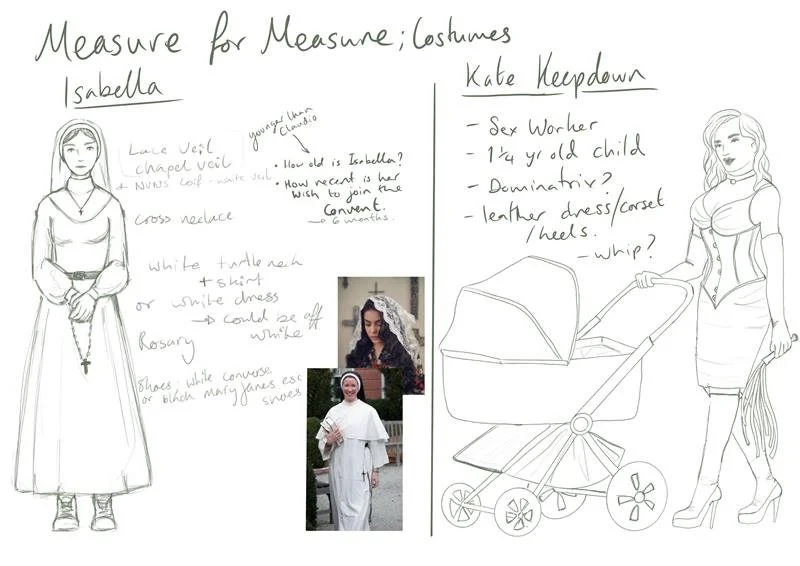 Measure for Measure; Costumes
Isabella
Lace Veil
chapel veil
+ NUNS Coif - white veil
cross necklace
younger than
Claudio
• How old is Isabella?
• How recent is her
wish to join the
Convent.
→ 6 months.
white turtle neck
+ skirt
or white dress
→ could be off
white
Rosary
Shoes: white converse
or black mary janes esc
shoes
Kate Keepdown
- Sex Worker
- 1 1/4 yr old child
- Dominatrix?
- leather dress/corset
/heels.
- whip?